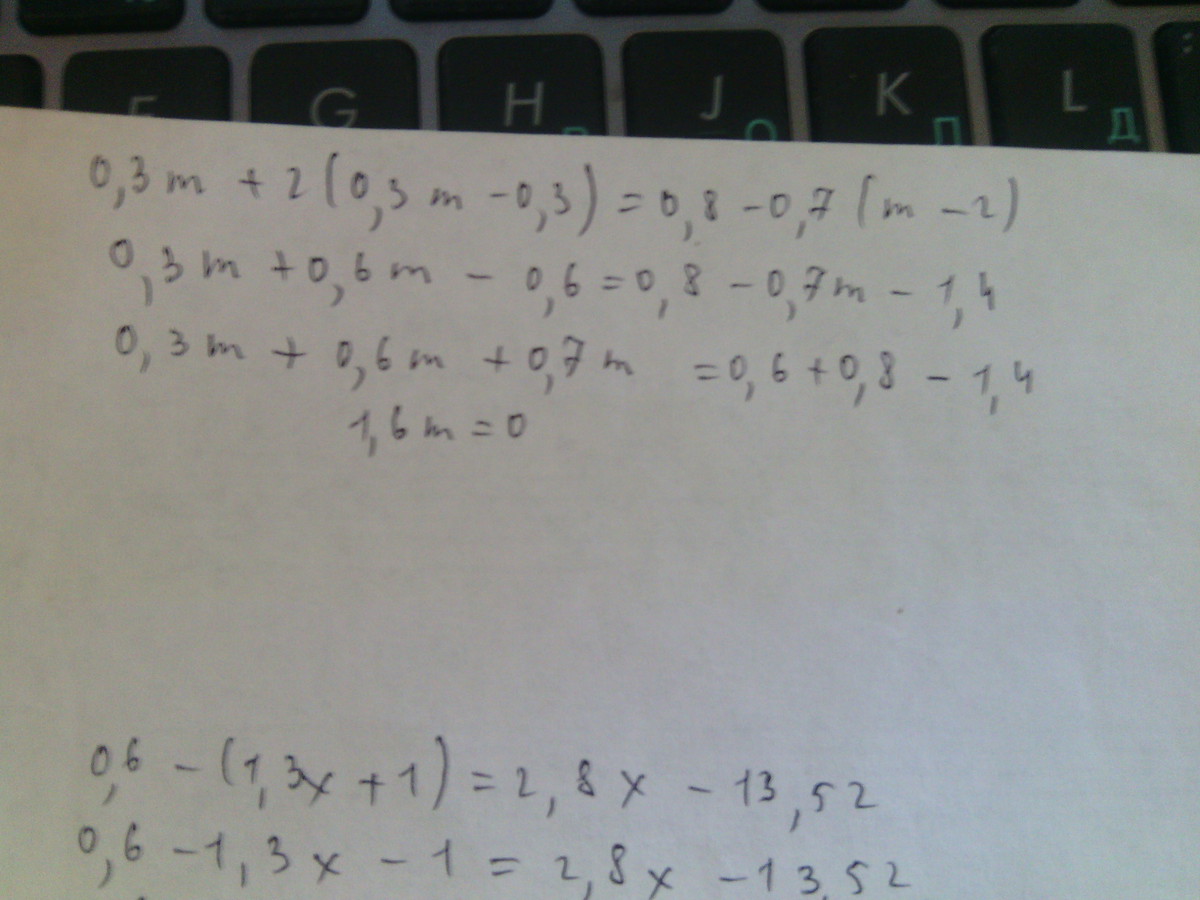 F G H J K L Д
0,3m + 2(0,3m - 0,3) = 0,8 - 0,7(m - 2)
0,3m + 0,6m - 0,6 = 0,8 - 0,7m - 1,4
0,3m + 0,6m + 0,7m = 0,6 + 0,8 - 1,4
1,6m = 0
0,6 - (1,3x + 1) = 2,8x - 13,52
0,6 - 1,3x - 1 = 2,8x - 13,52